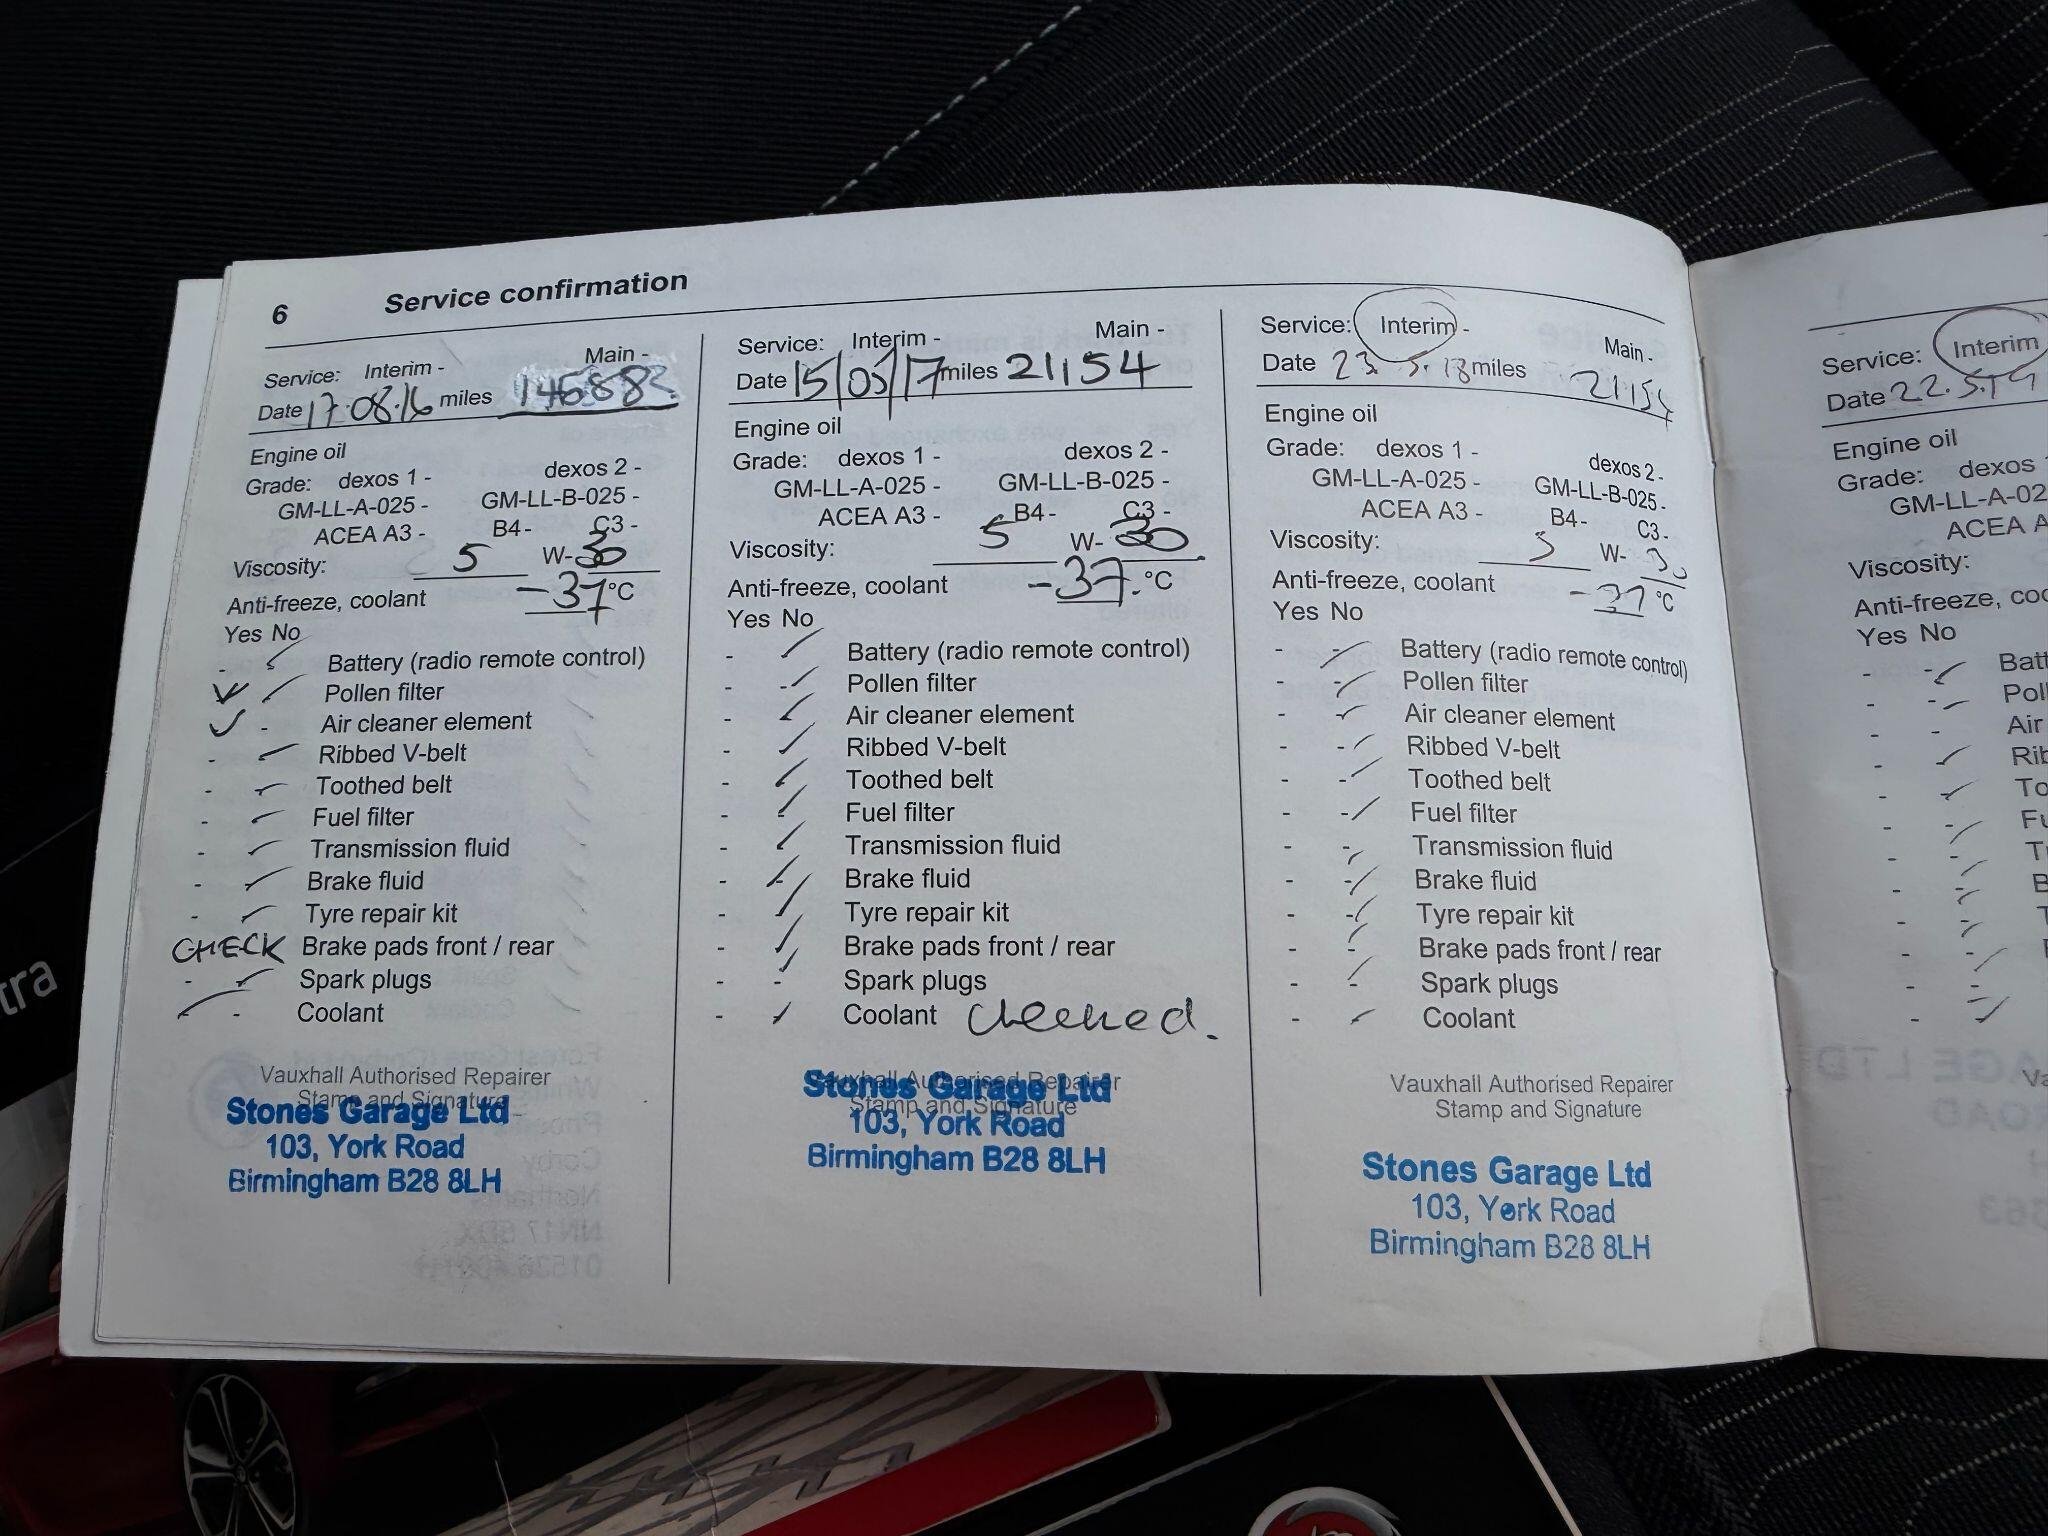 6 Service confirmation
Service: Interim - Main -
Date 17.08.16 miles
Engine oil
Grade: dexos 1 - dexos 2 -
GM-LL-A-025 - GM-LL-B-025 -
ACEA A3 - B4- C3-
Viscosity: 5 W-30
Anti-freeze, coolant -37 °C
Yes No
- Battery (radio remote control)
Pollen filter
- Air cleaner element
- Ribbed V-belt
- Toothed belt
- Fuel filter
- Transmission fluid
- Brake fluid
- Tyre repair kit
CHECK Brake pads front / rear
- Spark plugs
- Coolant
Vauxhall Authorised Repairer
Stamp and Signature
Stones Garage Ltd
103, York Road
Birmingham B28 8LH
Service: Interim - Main -
Date 15/05/17 miles 21,154
Engine oil
Grade: dexos 1 - dexos 2 -
GM-LL-A-025 - GM-LL-B-025 -
ACEA A3 - B4- C3-
Viscosity: 5 W- 30
Anti-freeze, coolant -37. °C
Yes No
- Battery (radio remote control)
- - Pollen filter
- Air cleaner element
- Ribbed V-belt
- Toothed belt
- Fuel filter
- Transmission fluid
- Brake fluid
- Tyre repair kit
- Brake pads front / rear
- - Spark plugs
- Coolant checked.
Vauxhall Authorised Repairer
Stamp and Signature
Stones Garage Ltd
103, York Road
Birmingham B28 8LH
Service: Interim - Main -
Date 23.5.18 miles 21154
Engine oil
Grade: dexos 1 - dexos 2 -
GM-LL-A-025 - GM-LL-B-025-
ACEA A3 - B4- C3-
Viscosity: 5 W- 30
Anti-freeze, coolant -37 °C
Yes No
- - Battery (radio remote control)
- - Pollen filter
- - Air cleaner element
- - Ribbed V-belt
- - Toothed belt
- - Fuel filter
- - Transmission fluid
- - Brake fluid
- - Tyre repair kit
- - Brake pads front / rear
- - Spark plugs
- - Coolant
Vauxhall Authorised Repairer
Stamp and Signature
Stones Garage Ltd
103, York Road
Birmingham B28 8LH
Service: Interim
Date 22.5.19
Engine oil
Grade: dexos
GM-LL-A-02
ACEA A
Viscosity:
Anti-freeze, coo
Yes No
- - Batt
- - Poll
- - Air
- - Rib
- - To
- - Fu
tra